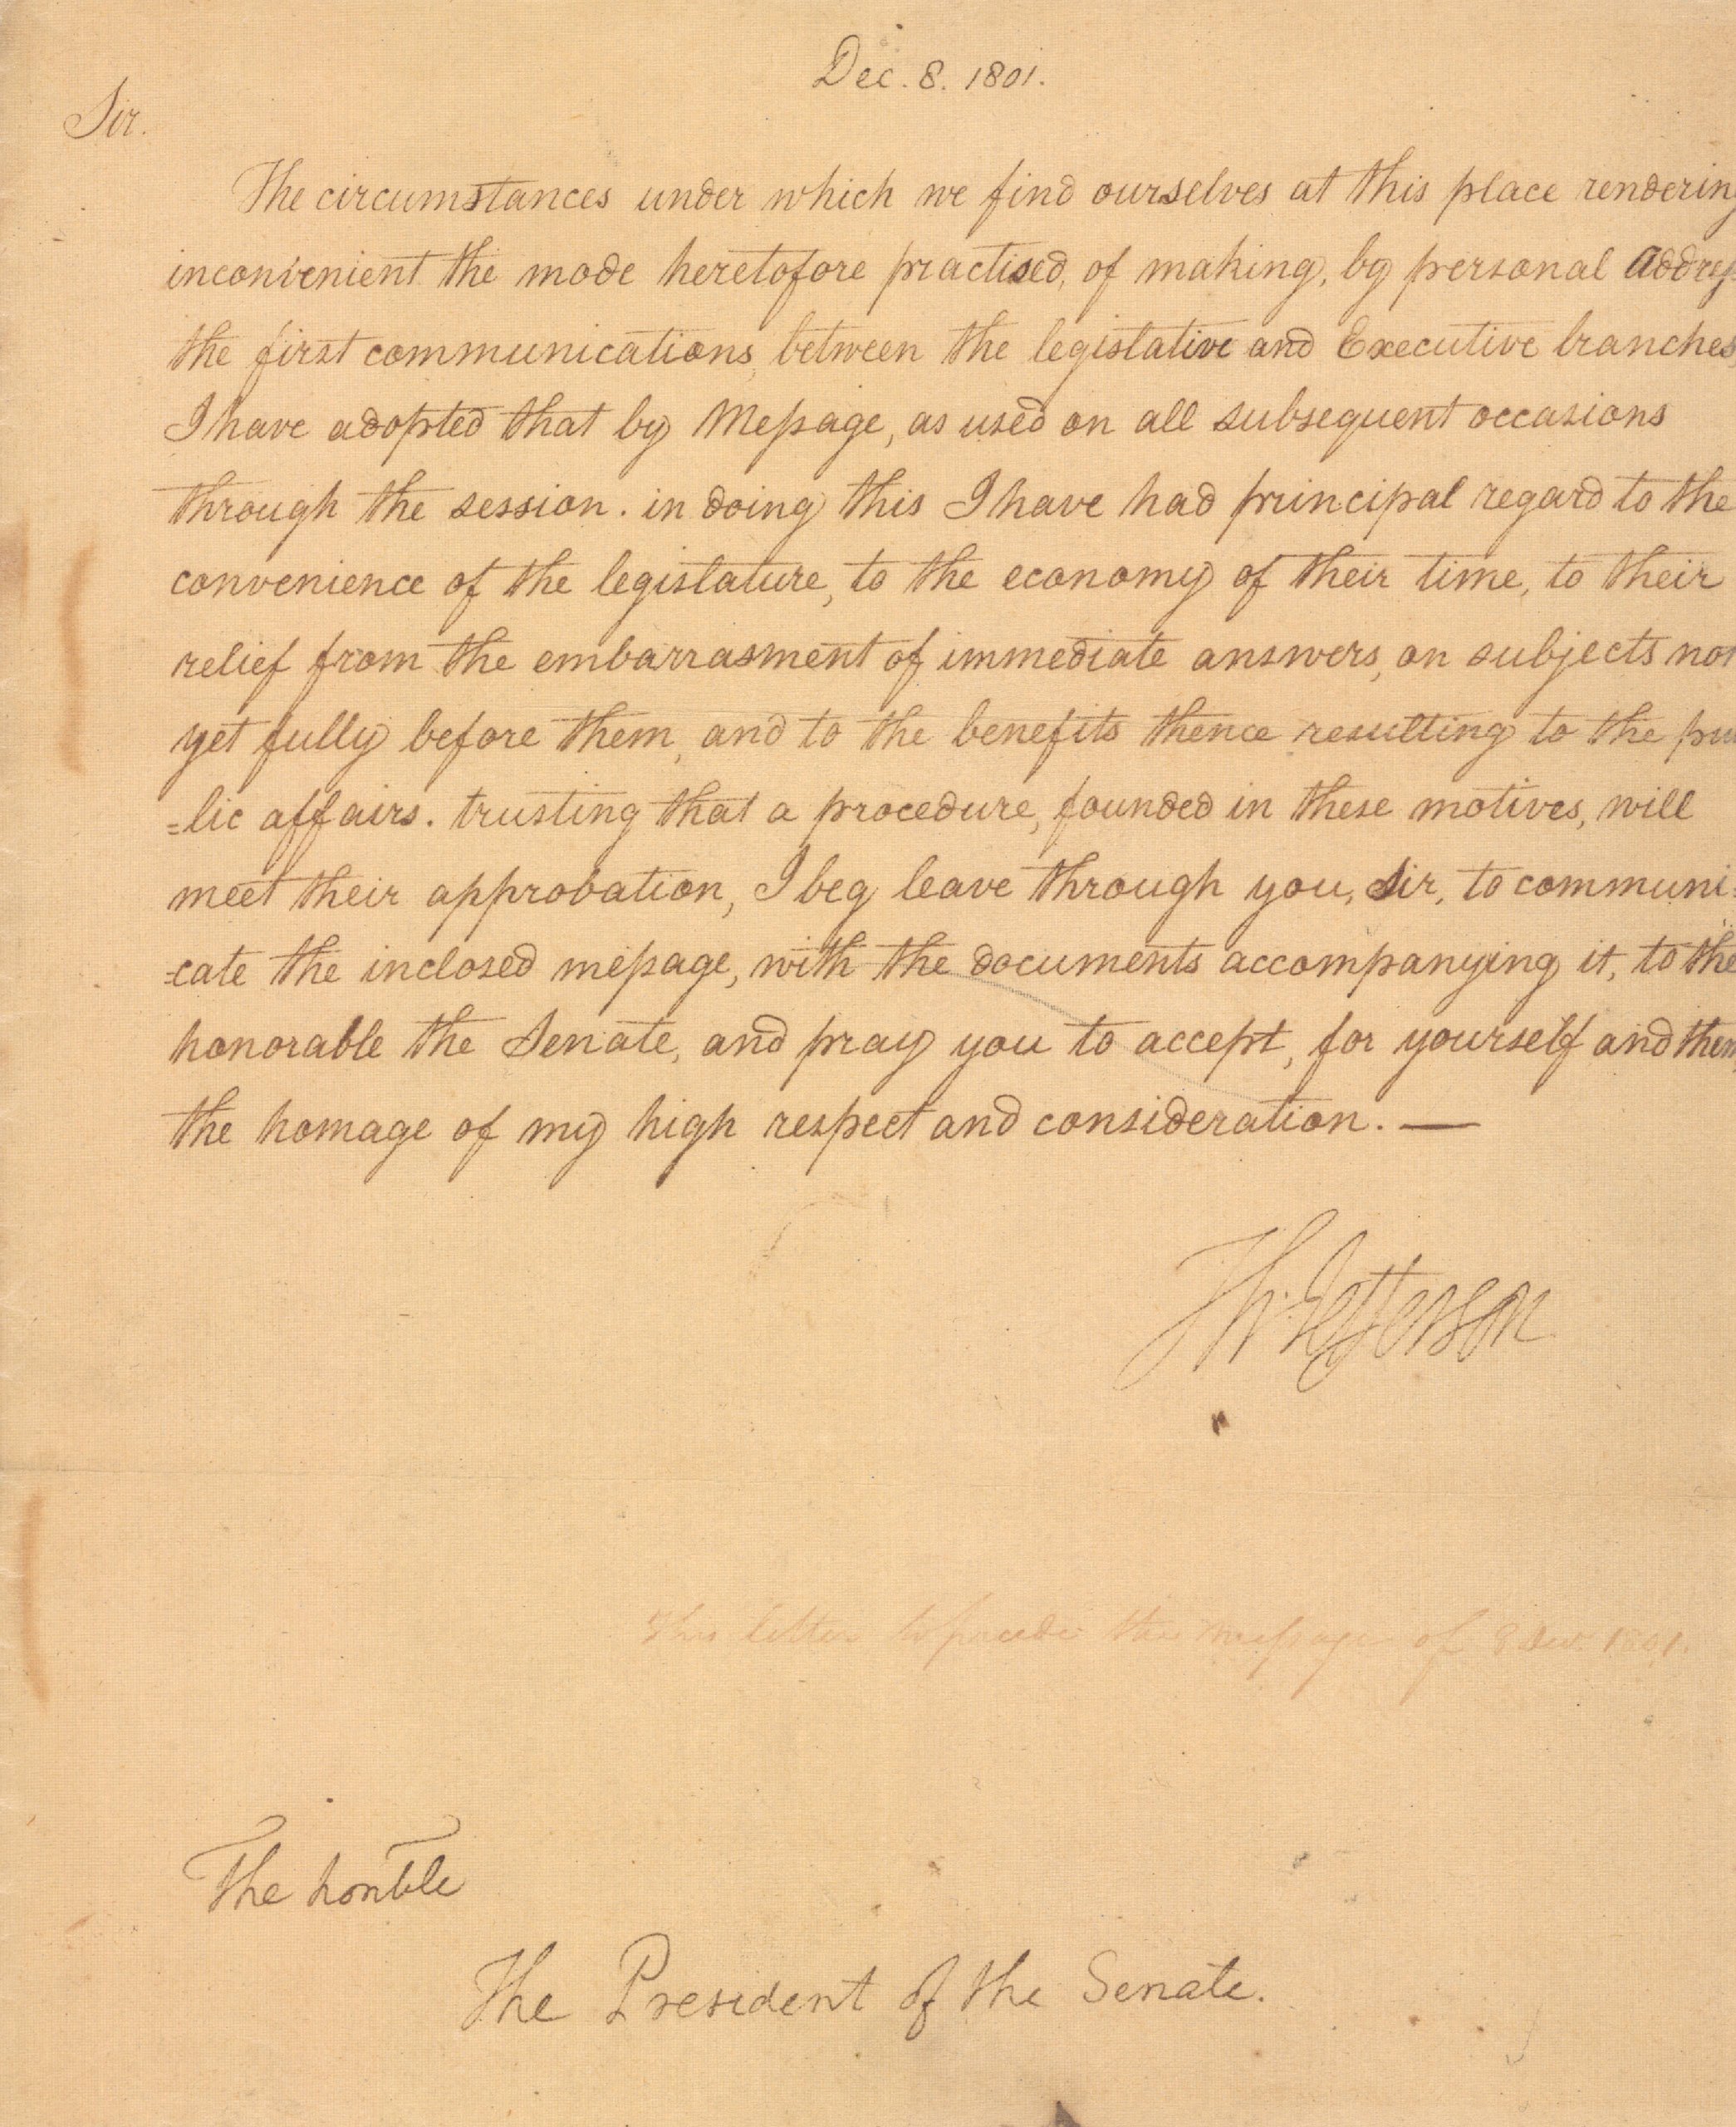 Dec. 8. 1801.
Sir.
The circumstances under which we find ourselves at this place rendering
inconvenient the mode heretofore practised, of making, by personal address
the first communications between the legislative and Executive branches,
I have adopted that by Message, as used on all subsequent occasions
through the session. in doing this I have had principal regard to the
convenience of the legislature, to the economy of their time, to their
relief from the embarrasment of immediate answers, on subjects not
yet fully before them, and to the benefits thence resulting to the pu
=lic affairs. trusting that a procedure, founded in these motives, will
meet their approbation, I beg leave through you, Sir, to communi=
=cate the inclosed message, with the documents accompanying it, to the
honorable the Senate, and pray you to accept, for yourself and them,
the homage of my high respect and consideration. —
Th: Jefferson
This letter to precede the message of 8 Dec. 1801.
The honble
The President of the Senate.